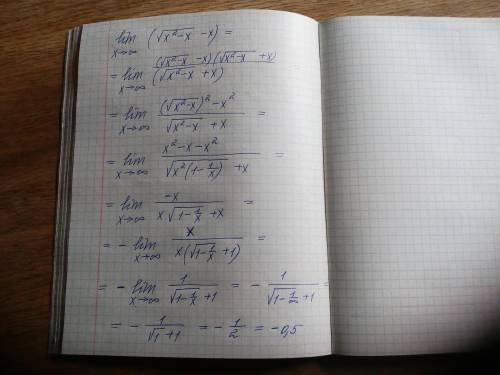 lim x→∞ (√(x²-x) -x) =
= lim x→∞ (√(x²-x) -x)(√(x²-x) +x) / (√(x²-x) +x) =
= lim x→∞ ((√(x²-x))² -x²) / (√(x²-x) +x) =
= lim x→∞ (x²-x-x²) / (√(x²(1-1/x)) +x) =
= lim x→∞ (-x) / (x√(1-1/x) +x) =
= - lim x→∞ x / (x(√(1-1/x) +1)) =
= - lim x→∞ 1 / (√(1-1/x) +1) = - 1 / (√(1-1/∞) +1) =
= - 1 / (√1 +1) = - 1/2 = -0,5